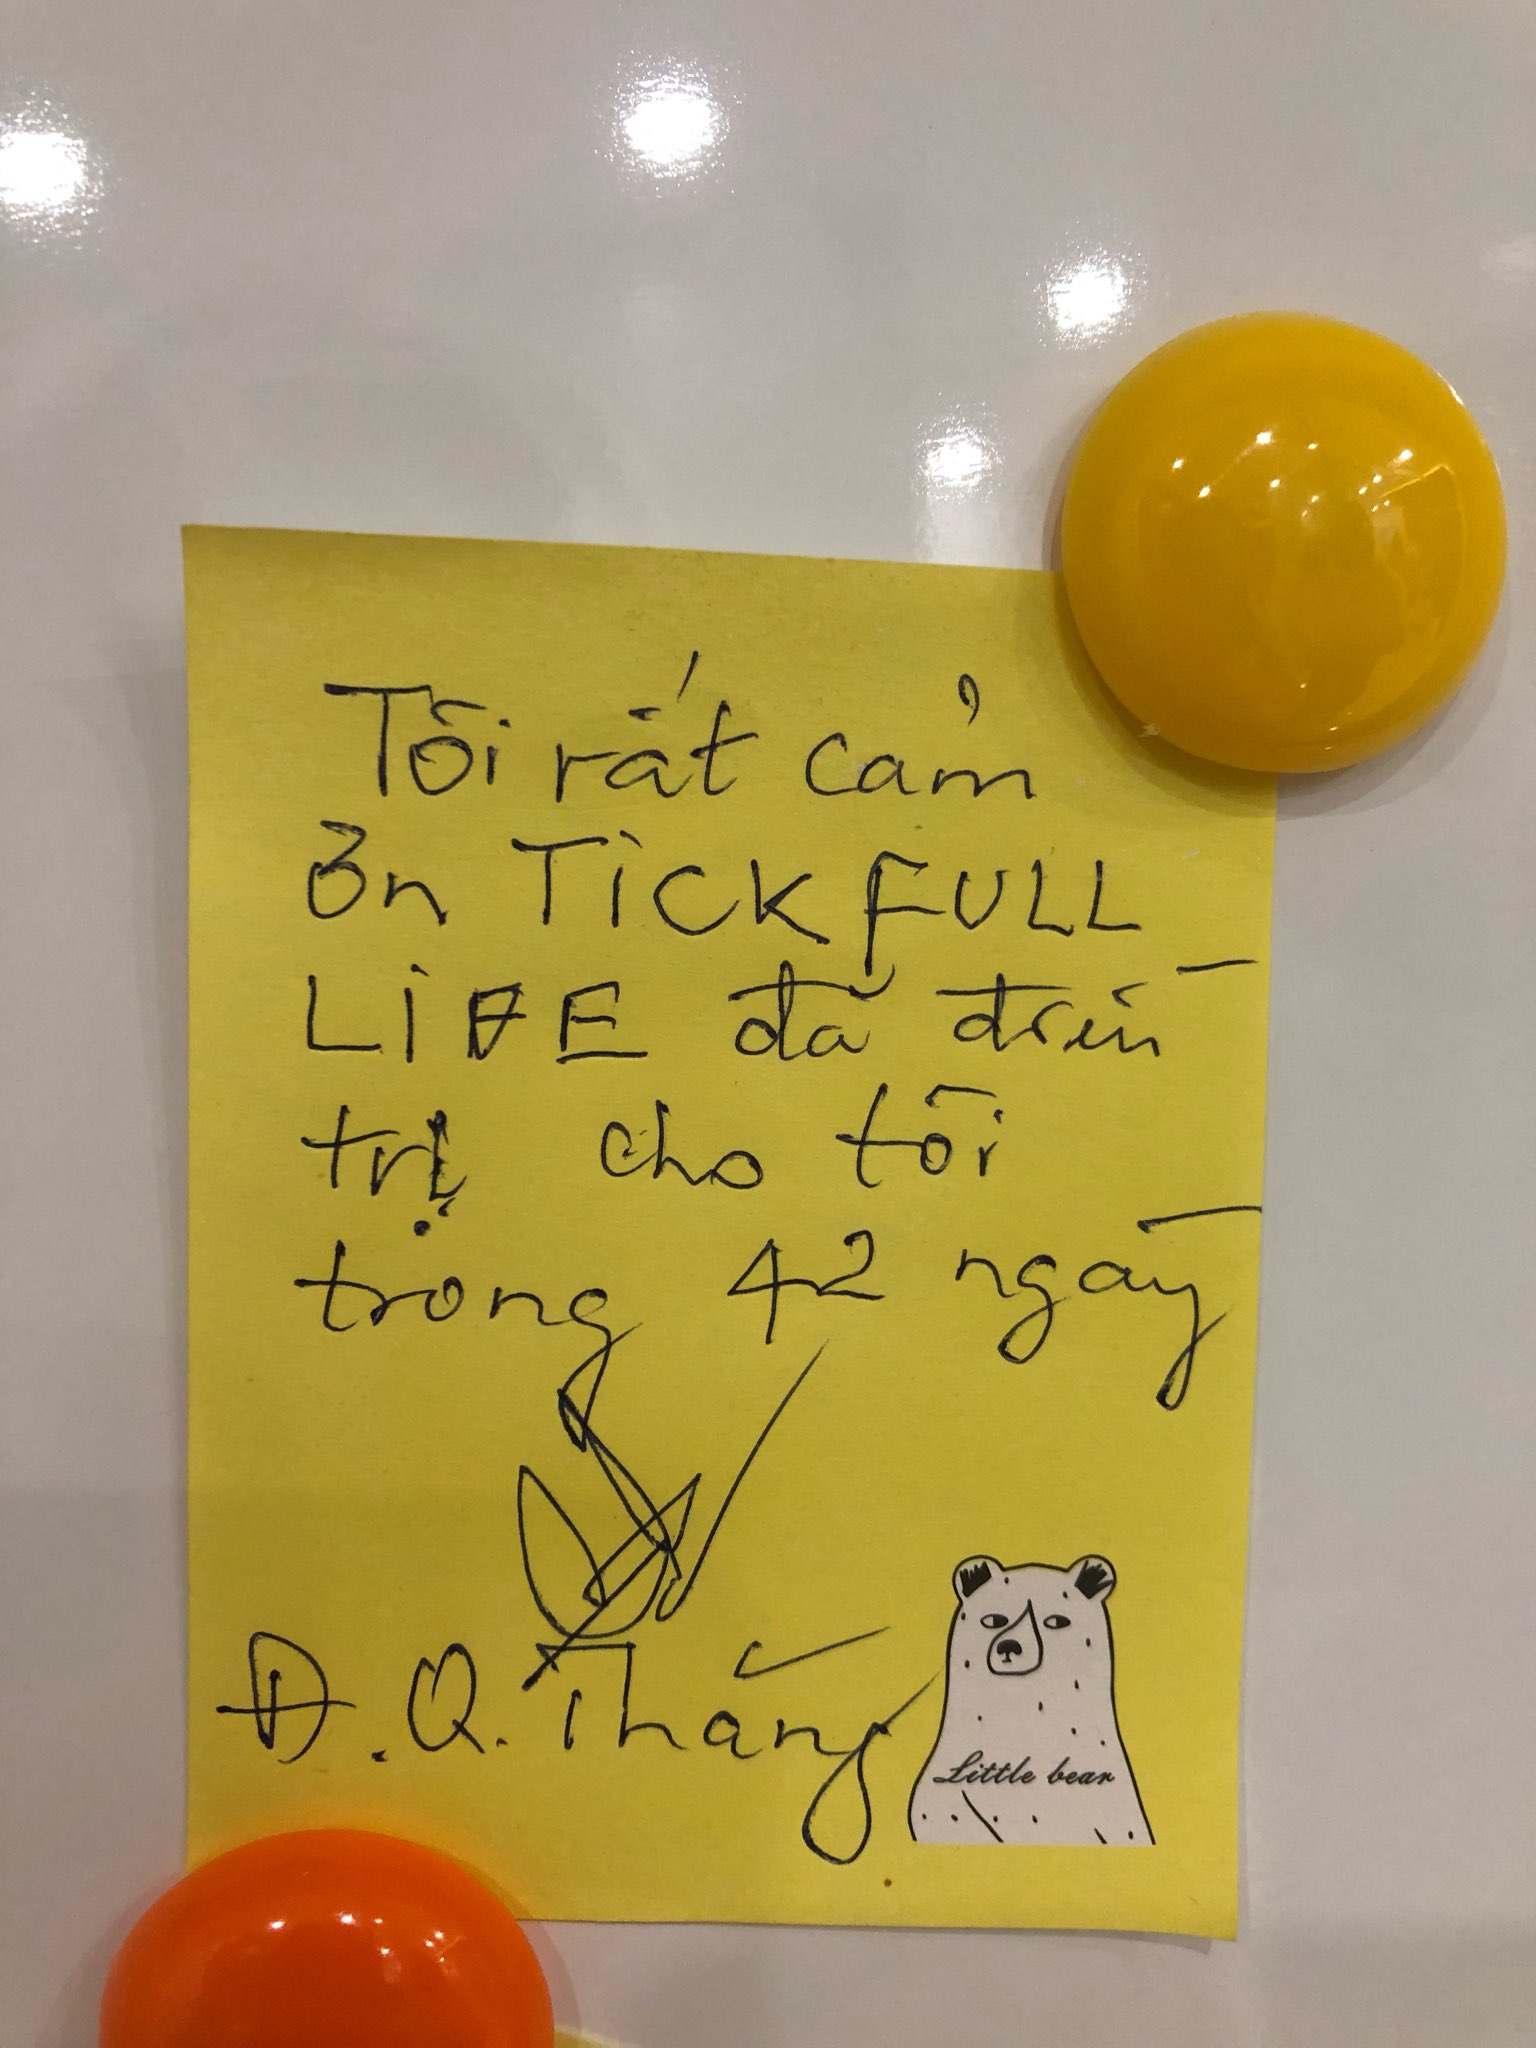 Tôi rất cảm
ơn TiCK FULL
LiFE đã điều
trị cho tôi
trong 42 ngày
Đ.Q. Thắng
Little bear